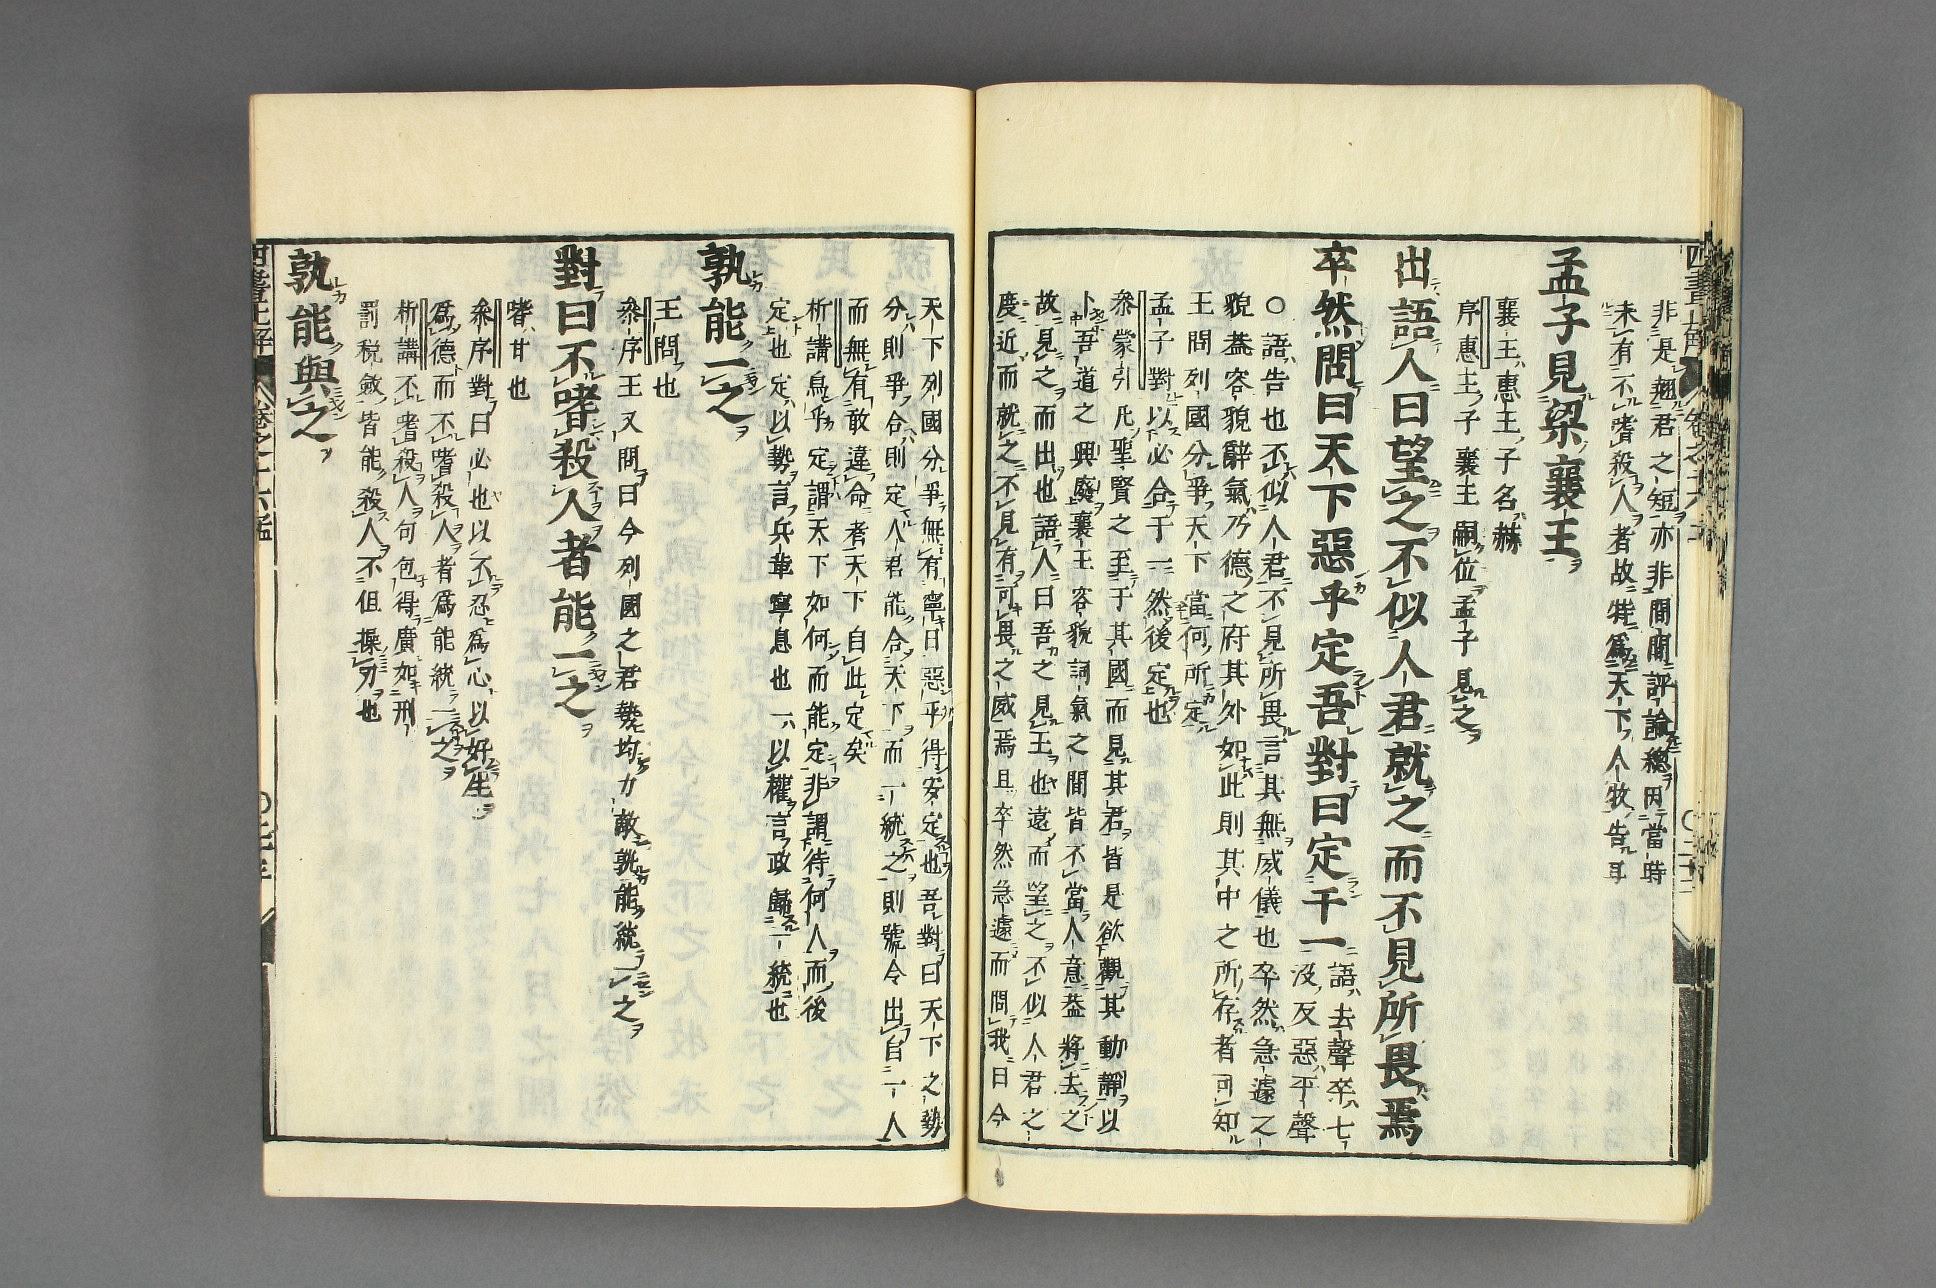 非是翹君之短亦非間閣評論總因當時
未有不嗜殺人者故特爲天下人牧告耳
孟子見梁襄王
襄王惠王子名赫
序惠王子襄王嗣位孟子見之
出語人曰望之不似人君就之而不見所畏焉
卒然問曰天下惡乎定吾對曰定于一
語去聲卒七
沒反惡平聲
○語告也不似人君不見所畏言其無威儀也卒然急遽之
貌蓋容貌辭氣乃德之府其外如此則其中之所存者可知
王問列國分爭天下當何所定
孟子對以必合于一然後定也
參蒙引凡聖賢之至于其國而見其君皆是欲觀其動靜以
卜吾道之興廢襄王容貌詞氣之間皆不當人意蓋將去之
故見之而出也語人曰吾之見王也遠而望之不似人君之
度近而就之不見有可畏之威焉且卒然急遽而問我曰今
天下列國分爭無有寧日惡乎得安定也吾對曰天下之勢
分則爭合則定人君能合天下而一統之則號令出自一人
而無有敢違命者天下自此定矣
析講烏乎定謂天下如何而能定非謂待何人而後
定也定以勢言兵革寧息也一以權言政歸一統也
孰能一之
王問也
參序王又問曰今列國之君勢均力敵孰能統一之
對曰不嗜殺人者能一之
嗜甘也
參序對曰必也以不忍爲心以好生
爲德而不嗜殺人者爲能統一之
析講不嗜殺人句包得廣如刑
罰税斂皆能殺人不但操刃也
孰能與之